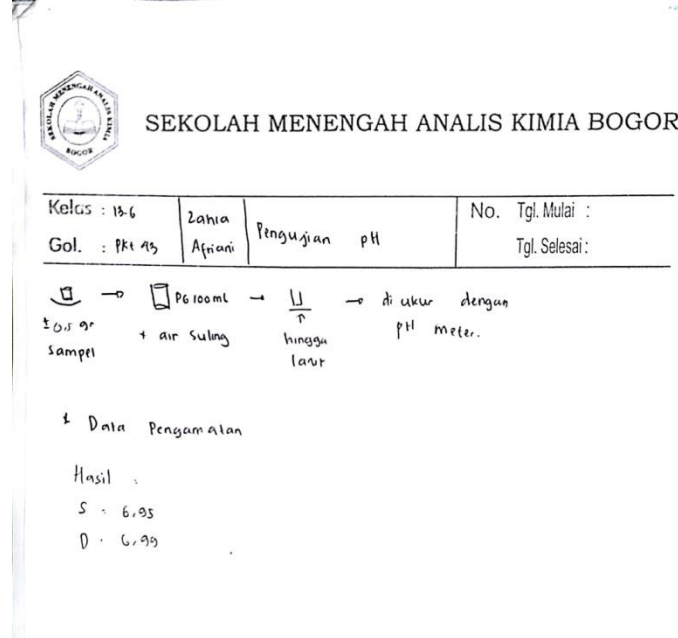 SEKOLAH MENENGAH ANALIS KIMIA
BOGOR
SEKOLAH MENENGAH ANALIS KIMIA BOGOR
Kelas : 13.6
Gol. : Pkt 93
Zahra
Afriani
Pengujian pH
No. Tgl. Mulai :
Tgl. Selesai :
± 0,5 gr
sampel
PG 100 ml
+ air suling
hingga
larut
di ukur dengan
pH meter.
Data Pengamatan
Hasil :
S : 6,95
D : 6,99